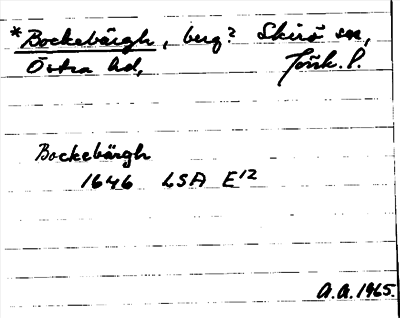 *Bockebärgh, berg? Skirö sn,
Östra hd, Jönk. l.
Bockebärgh
1646 LSA E12
A.A. 1965.